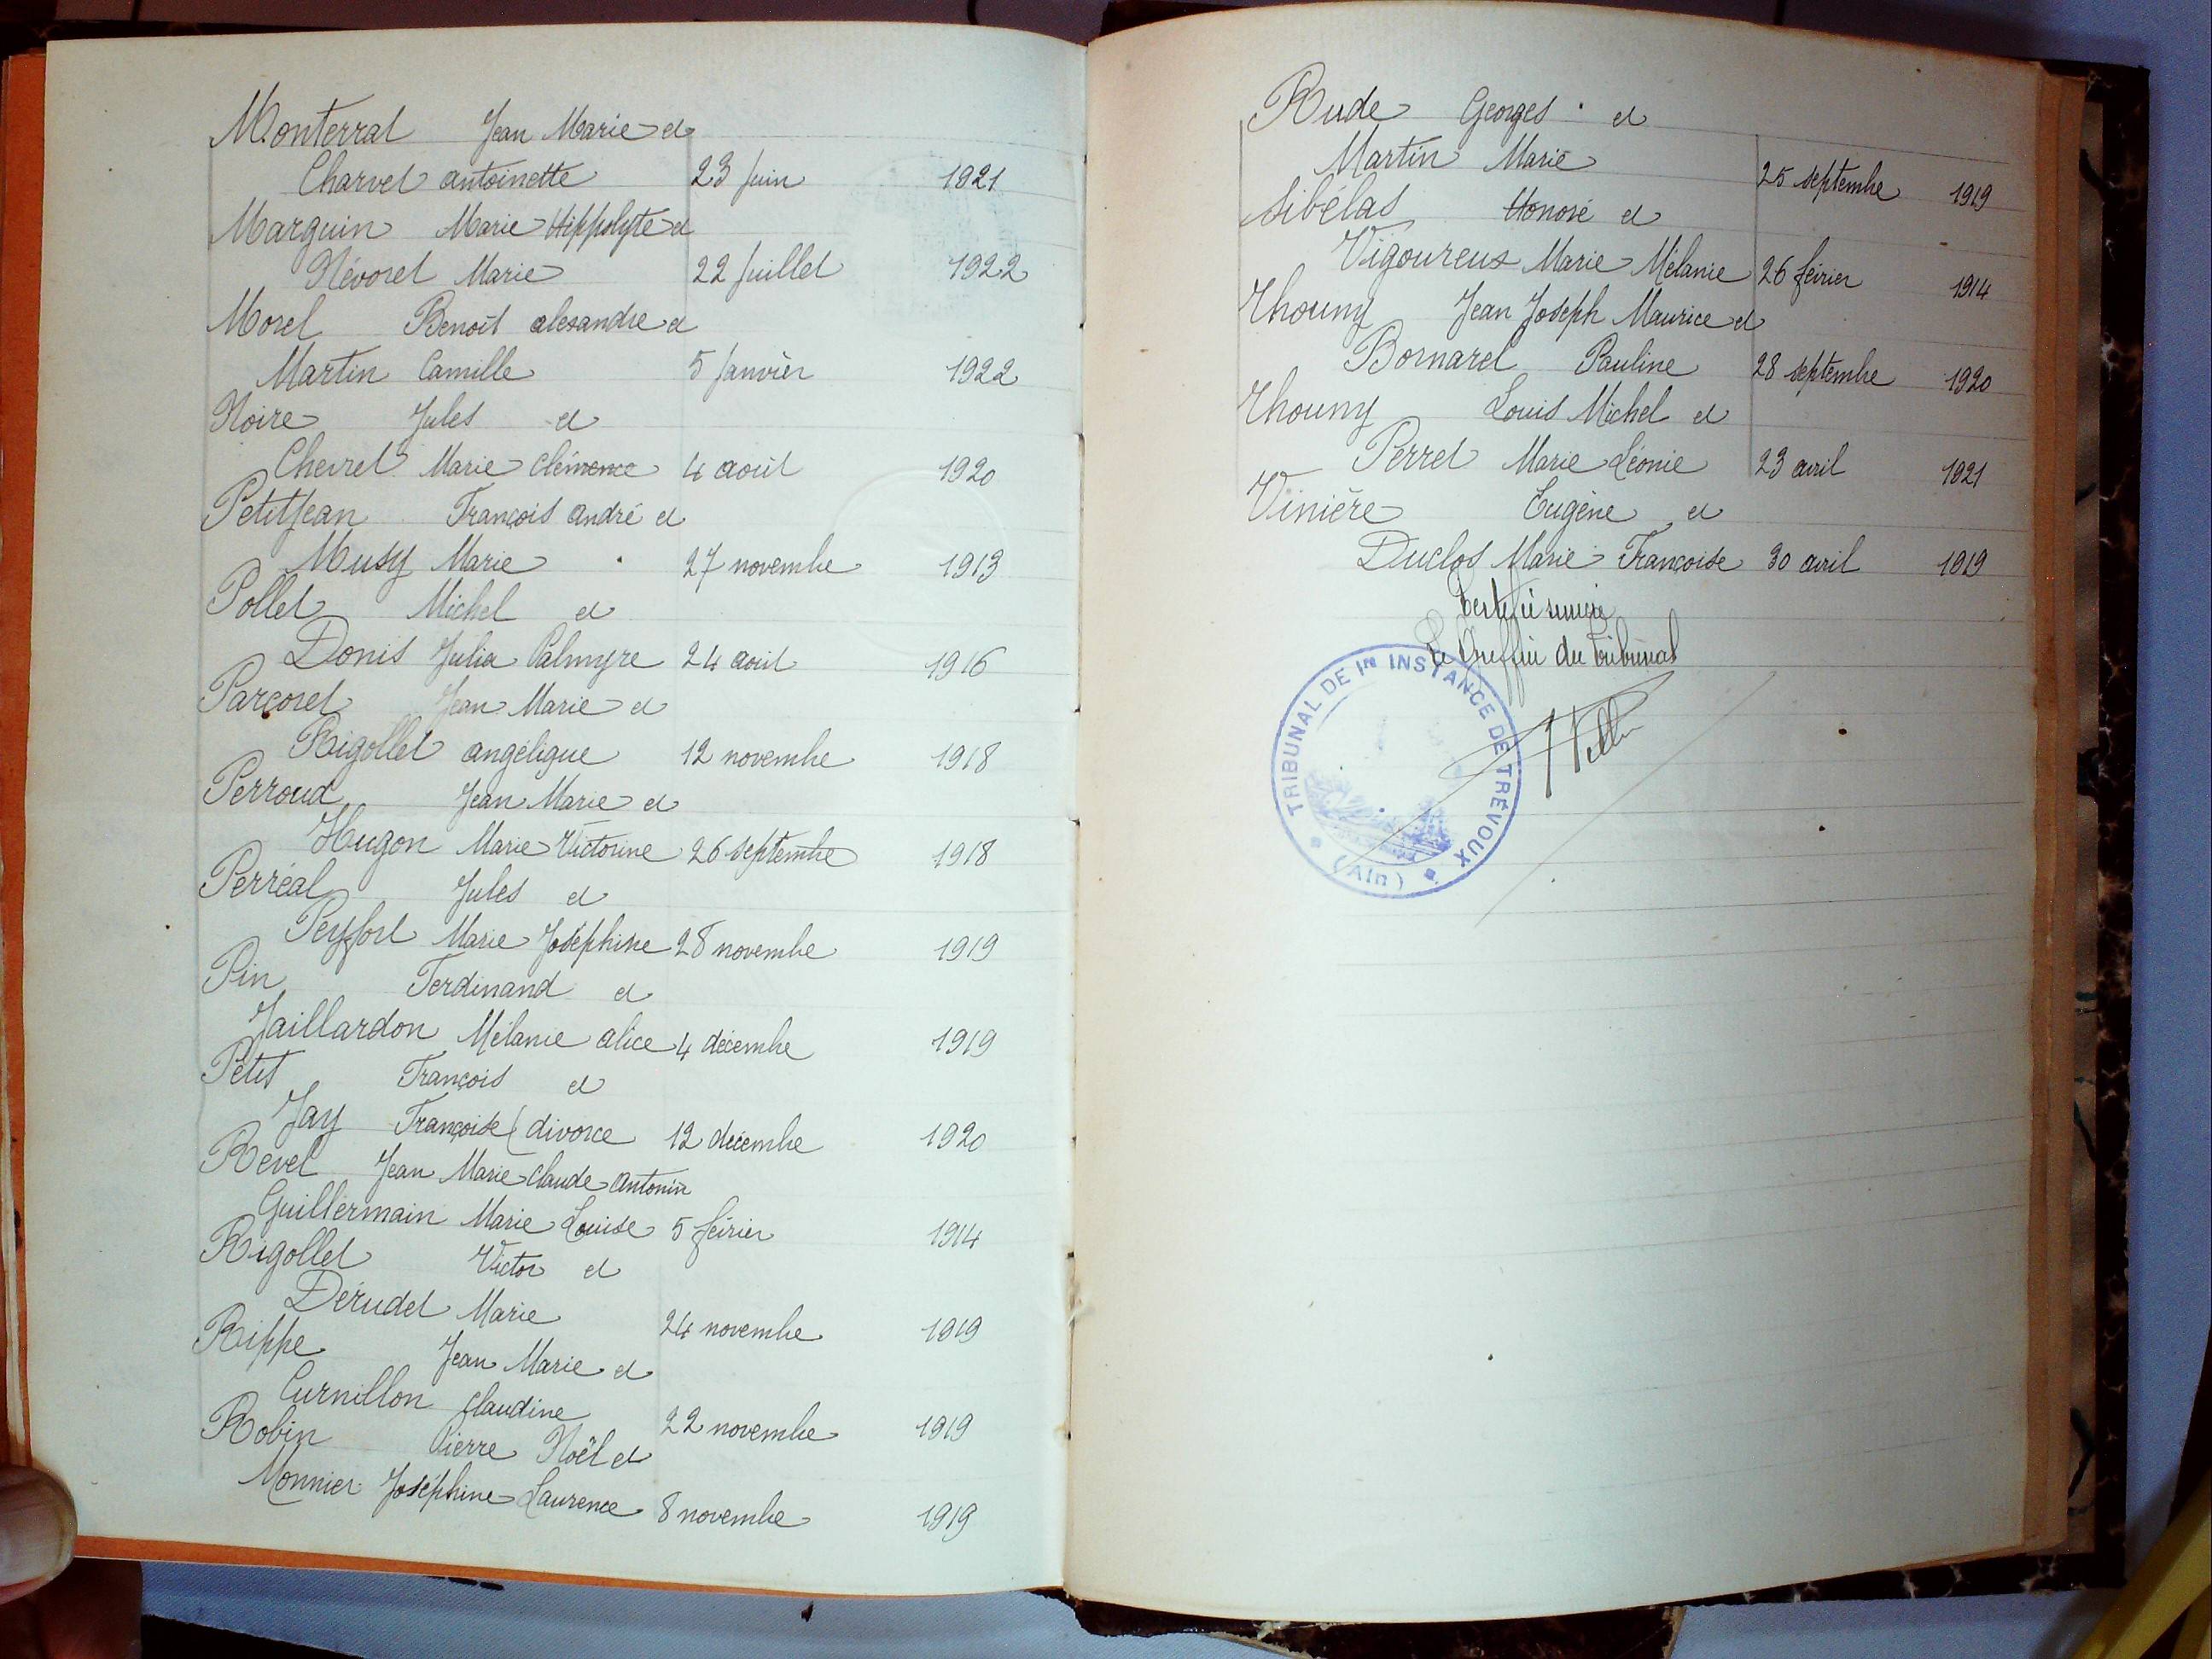 Monterrat Jean Marie et
Charvet antoinette 23 Juin 1921
Marguin Marie Hippolyte et
Névoret Marie 22 Juillet 1922
Morel Benoît alexandre et
Martin Camille 5 Janvier 1922
Noire Jules et
Chevret Marie Clémence 4 août 1920
PetitJean François andré et
Musy Marie 27 novembre 1913
Pollet Michel et
Donis Julia Palmyre 24 août 1916
Parçoret Jean Marie et
Rigollet angélique 12 novembre 1918
Perroud Jean Marie et
Hugon Marie Victorine 26 septembre 1918
Perréal Jules et
Peyfort Marie Joséphine 28 novembre 1919
Pin Ferdinand et
Jaillardon Mélanie alice 4 décembre 1919
Petit François et
Jay Françoise (divorce 12 décembre 1920
Revel Jean Marie Claude Antonin
Guillermain Marie Louise 5 février 1914
Rigollet Victor et
Dérudet Marie 24 novembre 1919
Rippe Jean Marie et
Curnillon Claudine 22 novembre 1919
Robin Pierre Noël et
Monnier Joséphine Laurence 8 novembre 1919
Rude Georges et
Martin Marie 25 septembre 1919
Sibélas Honoré et
Vigoureux Marie Mélanie 26 février 1914
Thouny Jean Joseph Maurice et
Bornarel Pauline 28 septembre 1920
Thouny Louis Michel et
Perret Marie Léonie 23 avril 1921
Vinière Eugène et
Duclos Marie Françoise 30 avril 1919
Certifié sincère
Le Greffier du Tribunal
TRIBUNAL DE 1re INSTANCE DE TRÉVOUX
(Ain)